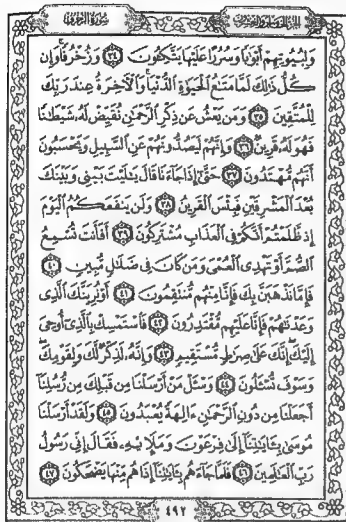 سُورَةُ الزُّخْرُفِ
الجزء الخامس والعشرون
وَلِبُيُوتِهِمْ أَبْوَٰبًا وَسُرُرًا عَلَيْهَا يَتَّكِـُٔونَ ٣٤ وَزُخْرُفًا وَإِن
كُلُّ ذَٰلِكَ لَمَّا مَتَٰعُ ٱلْحَيَوٰةِ ٱلدُّنْيَا وَٱلْـَٔاخِرَةُ عِندَ رَبِّكَ
لِلْمُتَّقِينَ ٣٥ وَمَن يَعْشُ عَن ذِكْرِ ٱلرَّحْمَٰنِ نُقَيِّضْ لَهُۥ شَيْطَٰنًا
فَهُوَ لَهُۥ قَرِينٌ ٣٦ وَإِنَّهُمْ لَيَصُدُّونَهُمْ عَنِ ٱلسَّبِيلِ وَيَحْسَبُونَ
أَنَّهُم مُّهْتَدُونَ ٣٧ حَتَّىٰٓ إِذَا جَآءَنَا قَالَ يَٰلَيْتَ بَيْنِى وَبَيْنَكَ
بُعْدَ ٱلْمَشْرِقَيْنِ فَبِئْسَ ٱلْقَرِينُ ٣٨ وَلَن يَنفَعَكُمُ ٱلْيَوْمَ
إِذ ظَّلَمْتُمْ أَنَّكُمْ فِى ٱلْعَذَابِ مُشْتَرِكُونَ ٣٩ أَفَأَنتَ تُسْمِعُ
ٱلصُّمَّ أَوْ تَهْدِى ٱلْعُمْىَ وَمَن كَانَ فِى ضَلَٰلٍ مُّبِينٍ ٤٠
فَإِمَّا نَذْهَبَنَّ بِكَ فَإِنَّا مِنْهُم مُّنتَقِمُونَ ٤١ أَوْ نُرِيَنَّكَ ٱلَّذِى
وَعَدْنَٰهُمْ فَإِنَّا عَلَيْهِم مُّقْتَدِرُونَ ٤٢ فَٱسْتَمْسِكْ بِٱلَّذِىٓ أُوحِىَ
إِلَيْكَ إِنَّكَ عَلَىٰ صِرَٰطٍ مُّسْتَقِيمٍ ٤٣ وَإِنَّهُۥ لَذِكْرٌ لَّكَ وَلِقَوْمِكَ
وَسَوْفَ تُسْـَٔلُونَ ٤٤ وَسْـَٔلْ مَنْ أَرْسَلْنَا مِن قَبْلِكَ مِن رُّسُلِنَآ
أَجَعَلْنَا مِن دُونِ ٱلرَّحْمَٰنِ ءَالِهَةً يُعْبَدُونَ ٤٥ وَلَقَدْ أَرْسَلْنَا
مُوسَىٰ بِـَٔايَٰتِنَآ إِلَىٰ فِرْعَوْنَ وَمَلَإِيْهِۦ فَقَالَ إِنِّى رَسُولُ
رَبِّ ٱلْعَٰلَمِينَ ٤٦ فَلَمَّا جَآءَهُم بِـَٔايَٰتِنَآ إِذَا هُم مِّنْهَا يَضْحَكُونَ ٤٧
٤٩٢